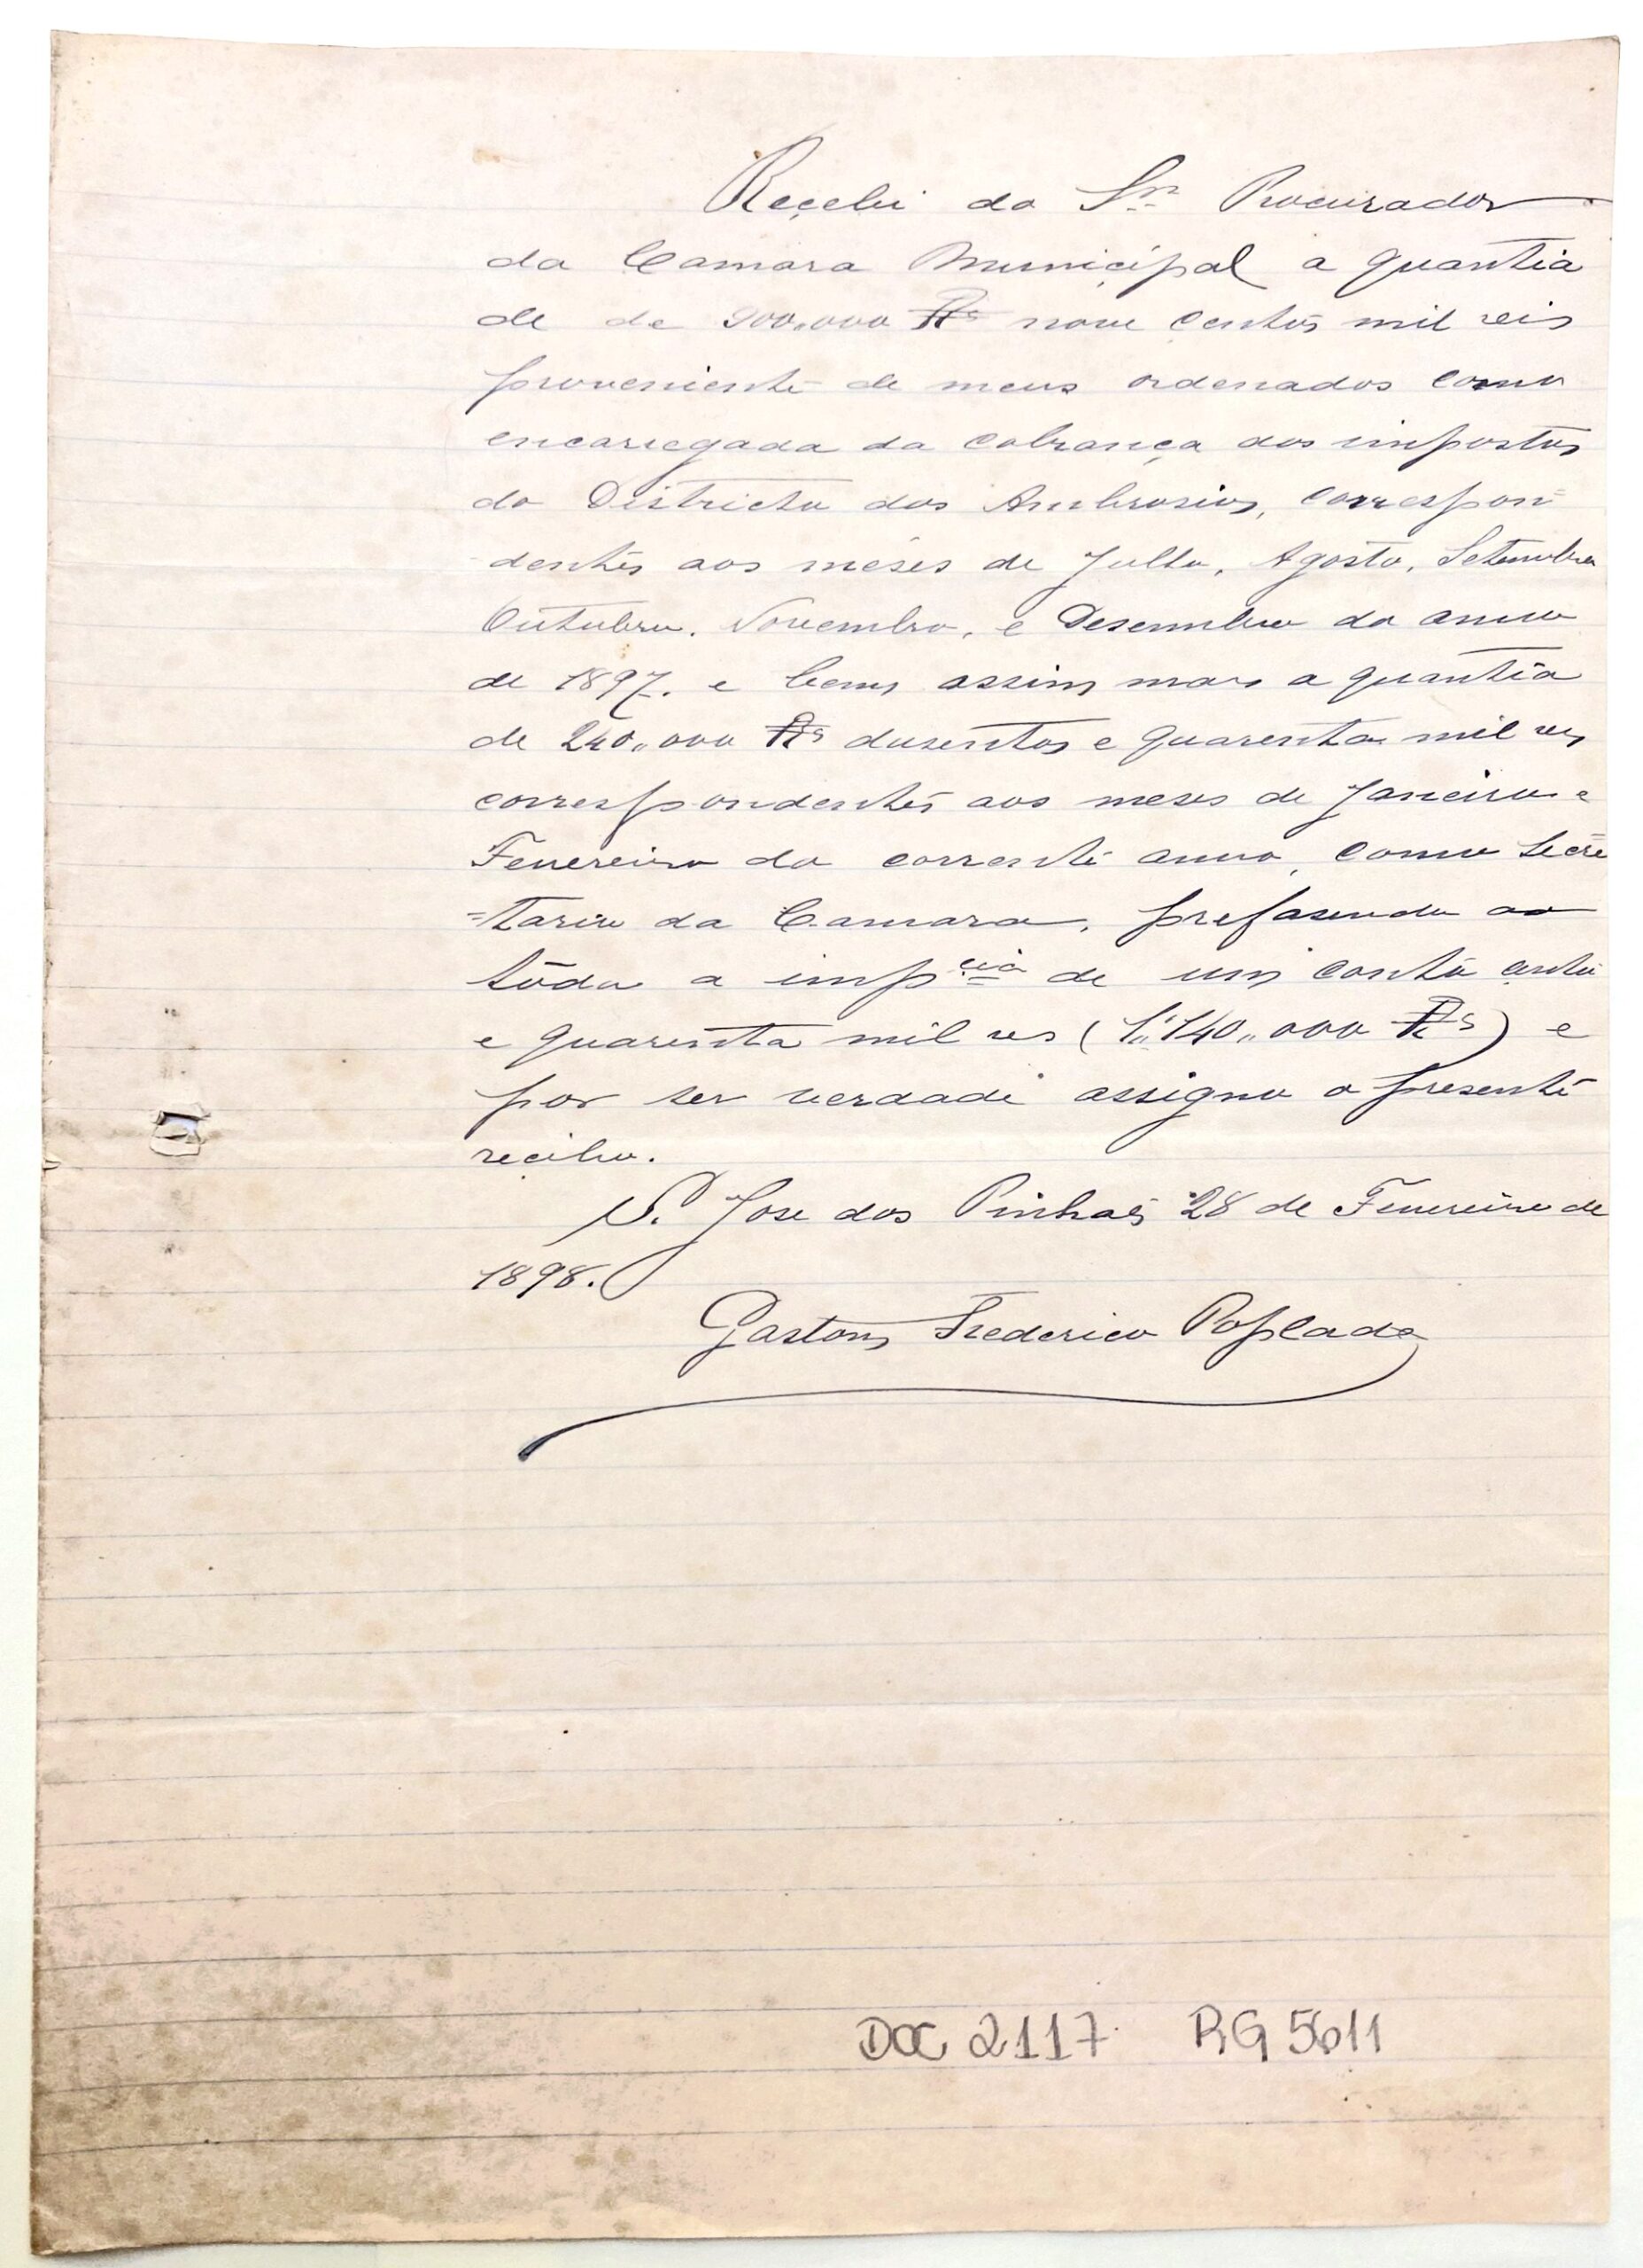 Reçebi do Snr. Procurador
da Camara Muniçipal a quantia
de de 900,,000 Rs nove çentos mil reis
proveniente de meus ordenados como
encarregado da cobrança dos impostos
do Districto dos Ambrosios, correspon=
dentes aos meses de Julho, Agosto, Setembro
Outubro. Novembro, e Desembro do anno
de 1897. e bem assim mais a quantia
de 240,,000 Rs dusentos e quarenta mil reis
correspondentes aos meses de Janeiro e
Fevereiro do corrente anno, como Secre
=tario da Camara, prefasendo ao
tôdo a impcia de um conto cento
e quarenta mil reis (1:140,,000 Rs) e
por ser verdade assigno o presente
reçibo.
S. Jose dos Pinhaes 28 de Fevereiro de
1898.
Gastom Frederico Poplade
DOC 2117 RG 5611